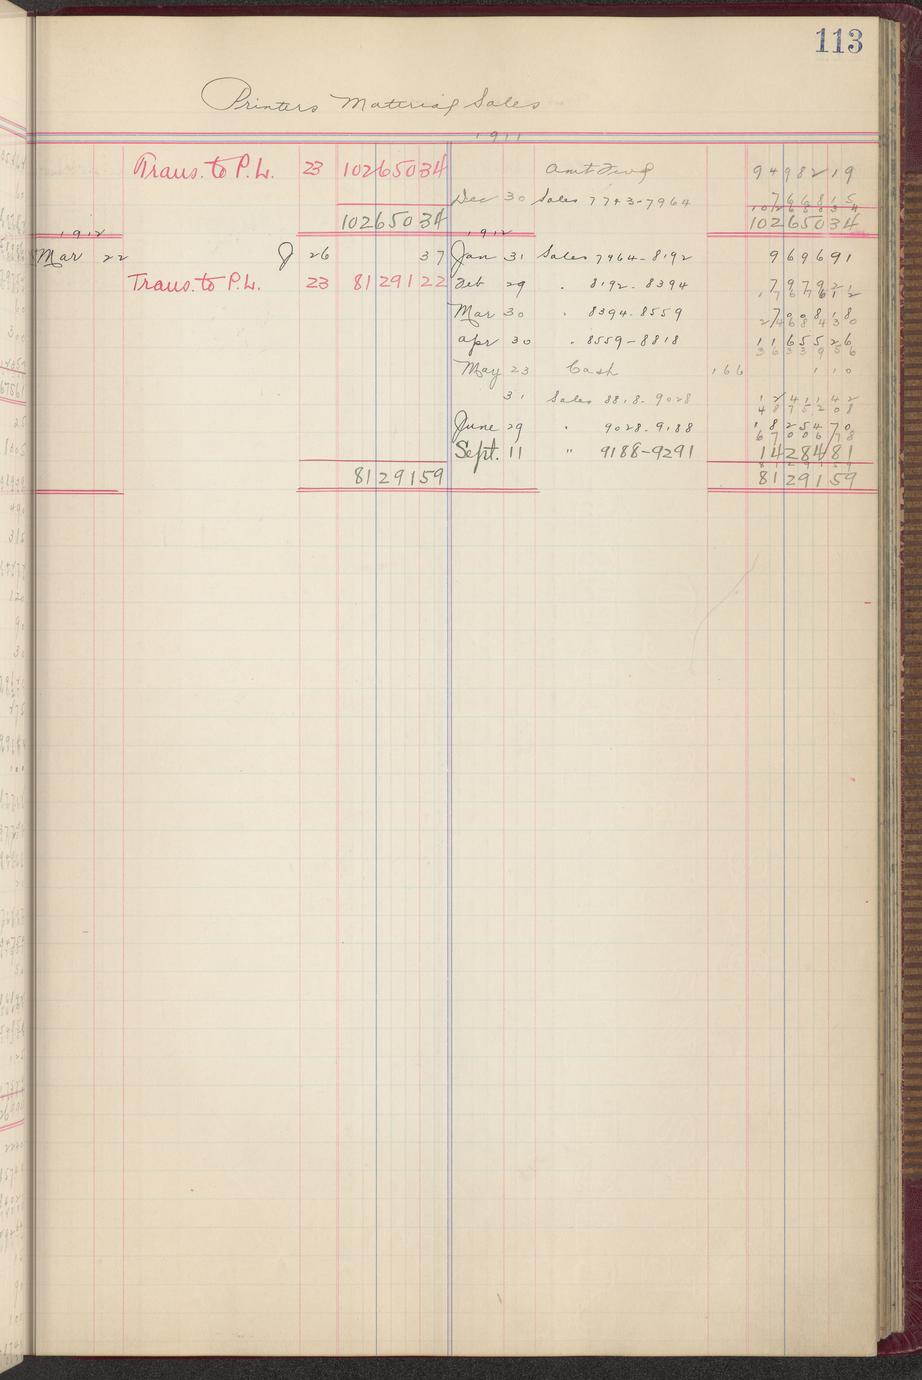 113
Printers Material Sales
1911
Trans. to P. L. 23 10265034 Amt Fwd 9498219
Dec 30 Sales 7743-7964 766815
10265034 10265034
1912 1912
Mar 22 J 26 37 Jan 31 Sales 7964-8192 969691
Trans. to P. L. 23 8129122 Feb 29 " 8192-8394 797921
1767612
Mar 30 " 8394-8559 700818
2468430
Apr 30 " 8559-8818 1165526
3633956
May 23 Cash 166 110
31 Sales 8818-9028 1241142
4875208
June 29 " 9028-9188 1825470
6700678
Sept. 11 " 9188-9291 1428481
8129159 8129159